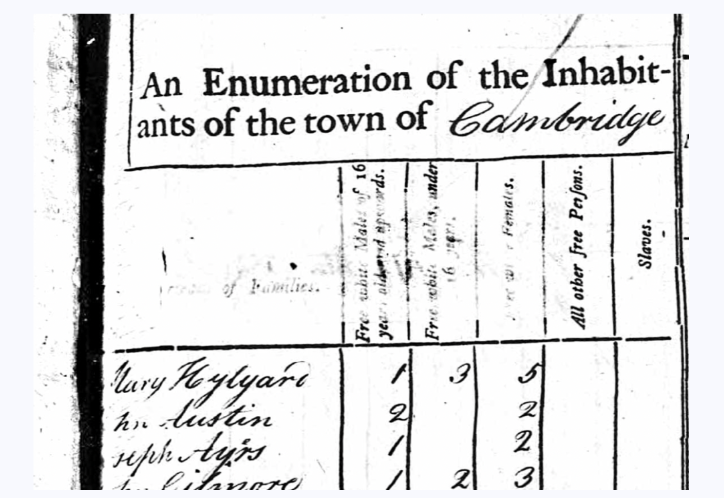 An Enumeration of the Inhabit-
ants of the town of Cambridge
of Families.
Free white Males of 16
years old and upwards.
Free white Males, under
16 years.
Females.
All other free Perſons.
Slaves.
Mary Hylyard 1 3 5
hn Austin 2 2
seph Ayrs 1 2
Gilmore 1 2 3